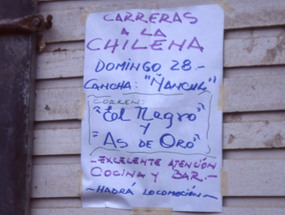 CARRERAS
A LA
CHILENA
DOMINGO 28.-
CANCHA: "ÑANCUL"
CORREN:
"EL NEGRO"
Y
"AS DE ORO"
-EXCELENTE ATENCIÓN
COCINA Y BAR.-
-HABRÁ LOCOMOCIÓN-